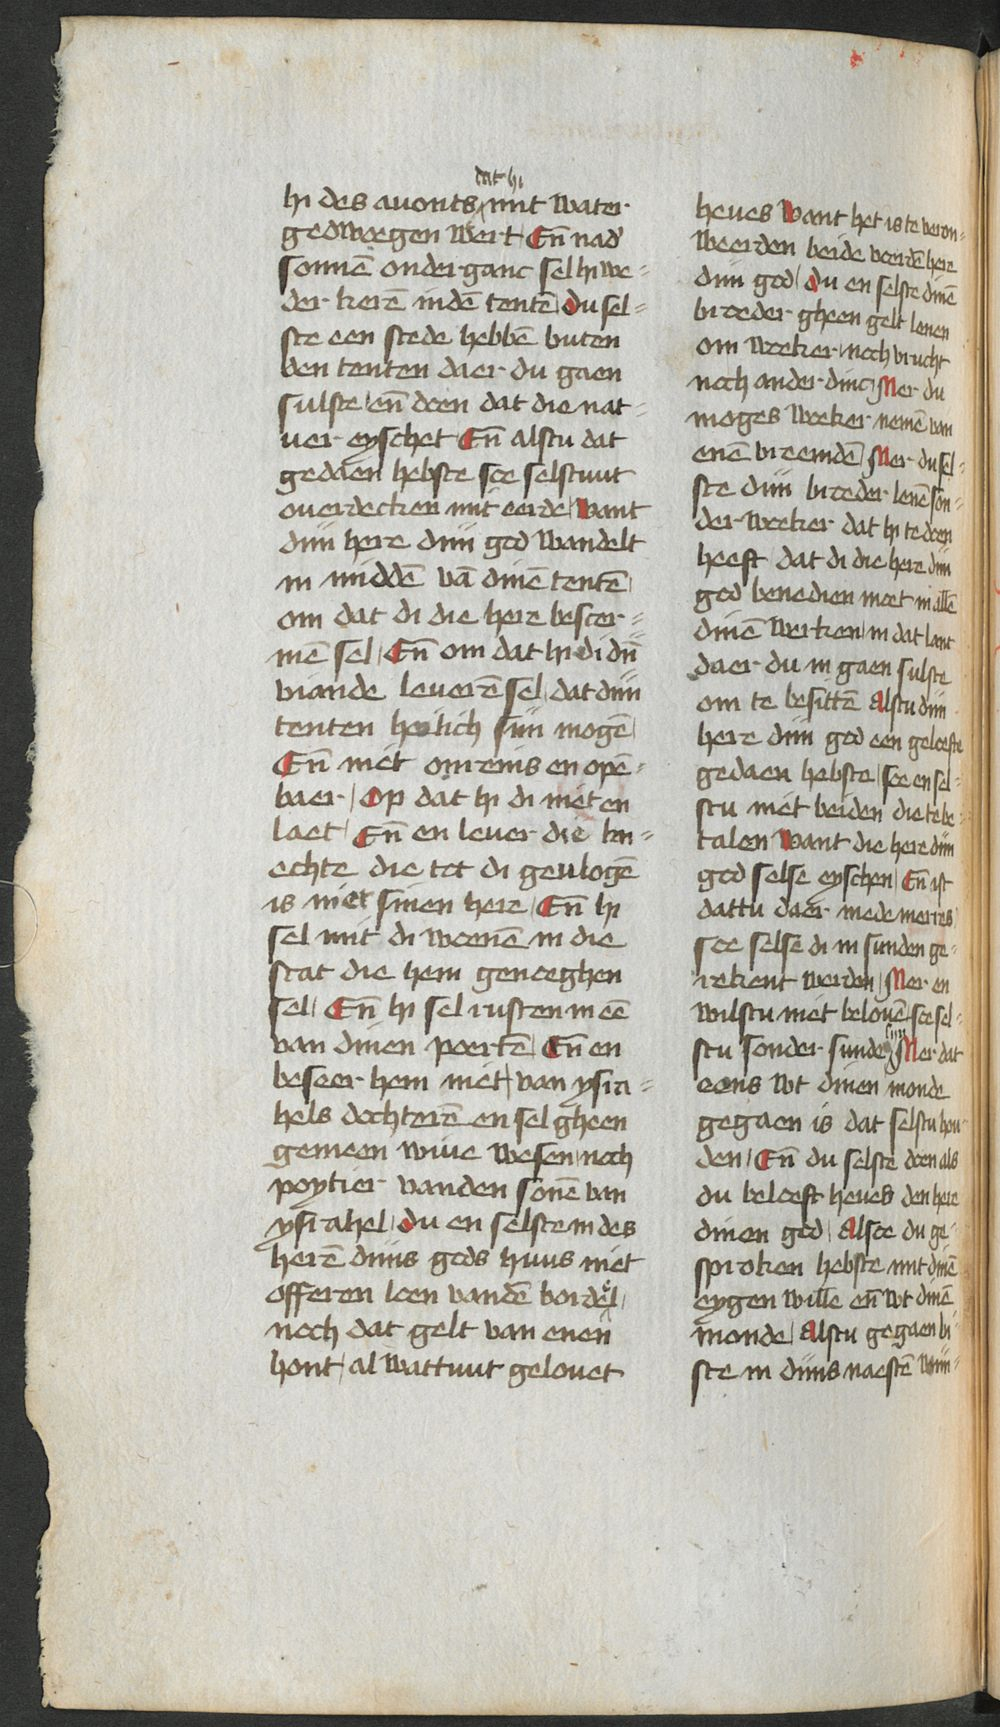 dat hi
hi des auonts mit water
gedwoegen wert En̄ nad'
sonnē onderganc sel hi we=
der kerē in dē tentē du sel=
ste een stede hebbē buten
den tenten daer du gaen
sulste en̄ doen dat die nat=
uer eyschet En̄ alstu dat
gedaen hebste soe selstuut
ouerdecken mit eerde want
dijn here dijn god wandelt
in middē vā dinē tentē
om dat di die here bescer=
mē sel En̄ om dat hi di dijn
viande leuerē sel dat dijn
tenten heilich sijn mogē
En̄ niet onreins en open=
baer Op dat hi di niet en
laet En̄ en leuer die kn=
echte die tot di geulogē
is niet sinen here En̄ hi
sel mit di woenē in die
stat die hem genoeghen
sel En̄ hi sel rusten in ee
van dinen poertē En̄ en
beseer hem niet van ysra=
hels dochterē en sel gheen
gemeen wiue wesen noch
poytier vanden sonē van
ysrahel du en selste in des
herē dijns gods huus niet
offeren loen vandē bordel
noch dat gelt van enen
hont al wattuut gelouet
heues want het is te veron=
weerden beide voerdē here
dijn god du en selste dinē
broeder gheen gelt lenen
om woeker noch vrucht
noch ander dinc Mer du
moges woeker nemē van
enē vreemdē Mer du sel=
ste dijn broeder lenē son=
der woeker dat hi te doen
heeft dat di die here dijn
god benedien moet in allē
dinē werken in dat lant
daer du in gaen sulste
om te besittē Alstu dijn
here dijn god een geloefte
gedaen hebste soe en sel=
stu niet beiden die te be=
talen want die here dijn
god selse eyschen En̄ ist
dattu daer mede merres
soe selse di in sunden ge=
rekent werden Mer en
wilstu niet belouē soe sel=
sijn
stu sonder sunde Mer dat
eens wt dinen monde
gegaen is dat selstu hou
den En̄ du selste doen als
du beloeft heues den here
dinen god Alsoe du ge=
sproken hebste mit dinē
eygen wille en̄ wt dinē
monde Alstu gegaen bi
ste in dijns naestē wijn=